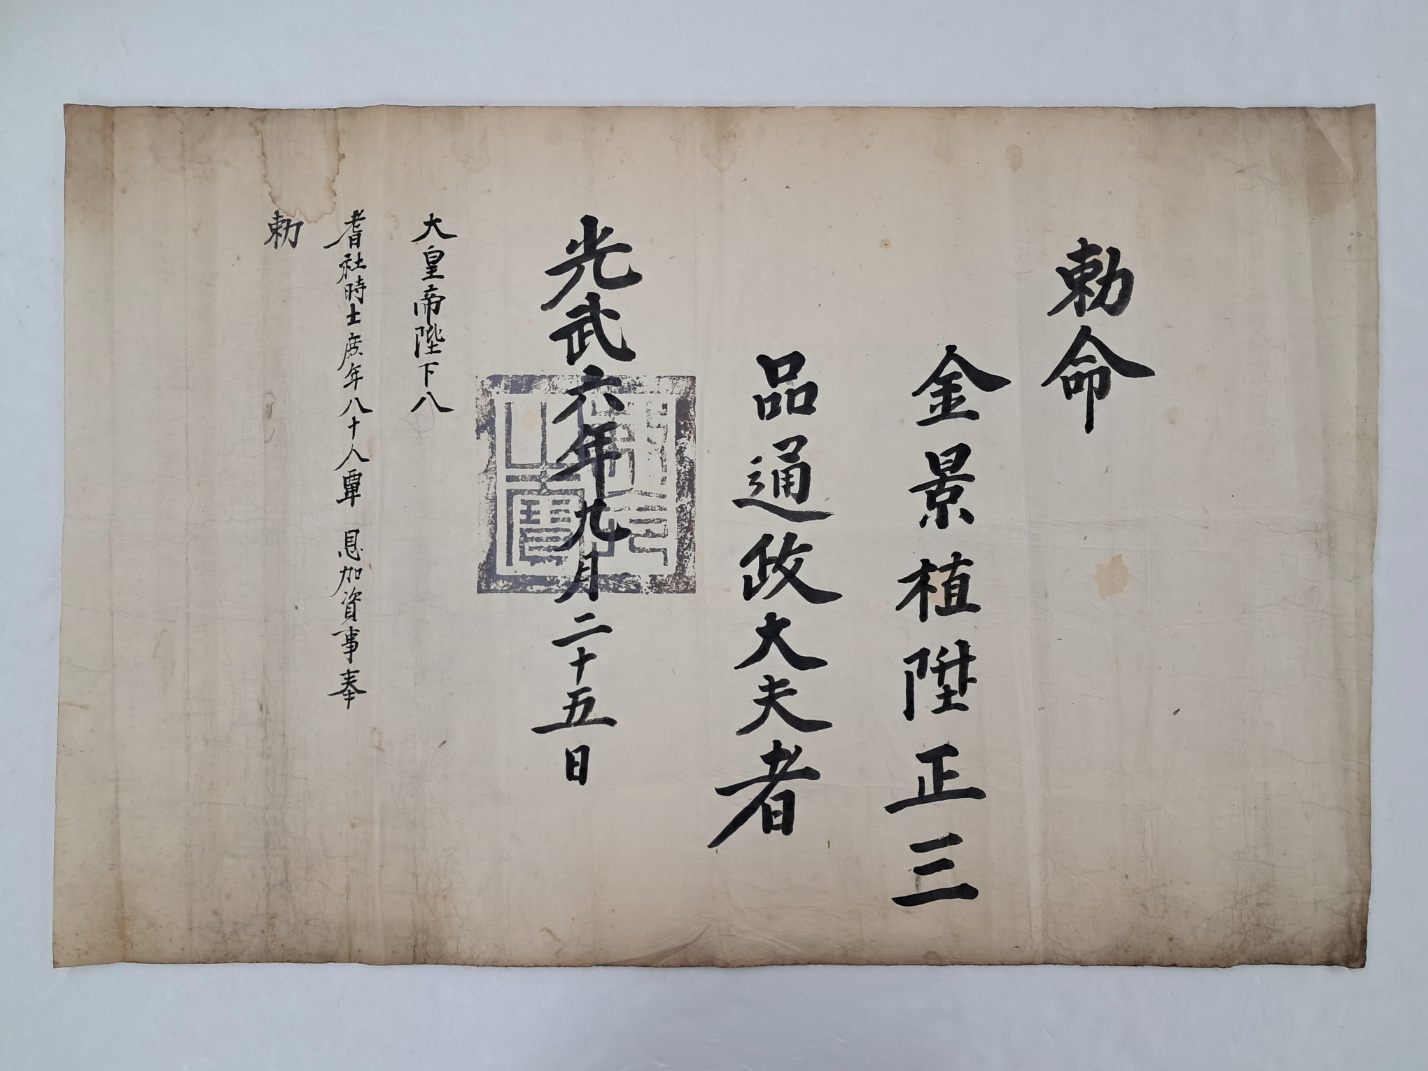 勅命
金景植陞正三
品通政大夫者
光武六年九月二十五日
大皇帝陛下入
耆社時士庶年八十人覃 恩加資事奉
勅
勅命之寶